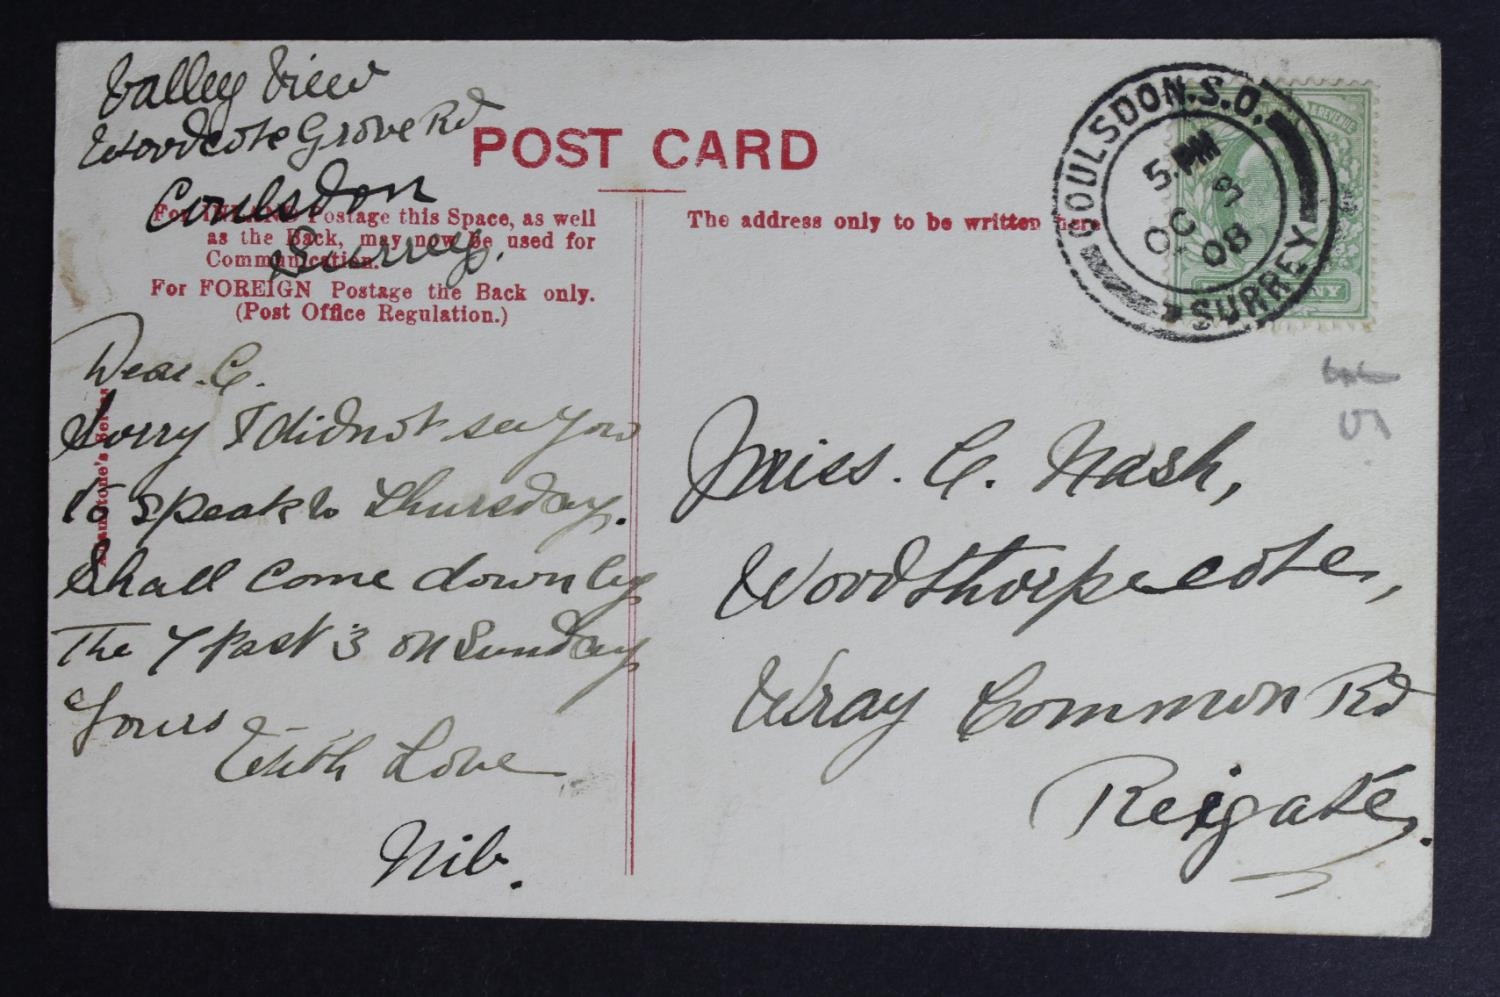 Valley View
Woodcote Grove Rd
Coulsdon
Surrey.
POST CARD
For INLAND Postage this Space, as well
as the Back, may now be used for
Communication.
For FOREIGN Postage the Back only.
(Post Office Regulation.)
The address only to be written here
COULSDON.S.O.
5.PM
OC 9
08
SURREY
Dear. C.
Sorry I did not see you
to speak to Thursday.
Shall come down by
The 7 past 3 on Sunday
Yours
With Love
Nib.
Miss. C. Nash,
Woodthorpe cote,
Wray Common Rd
Reigate.